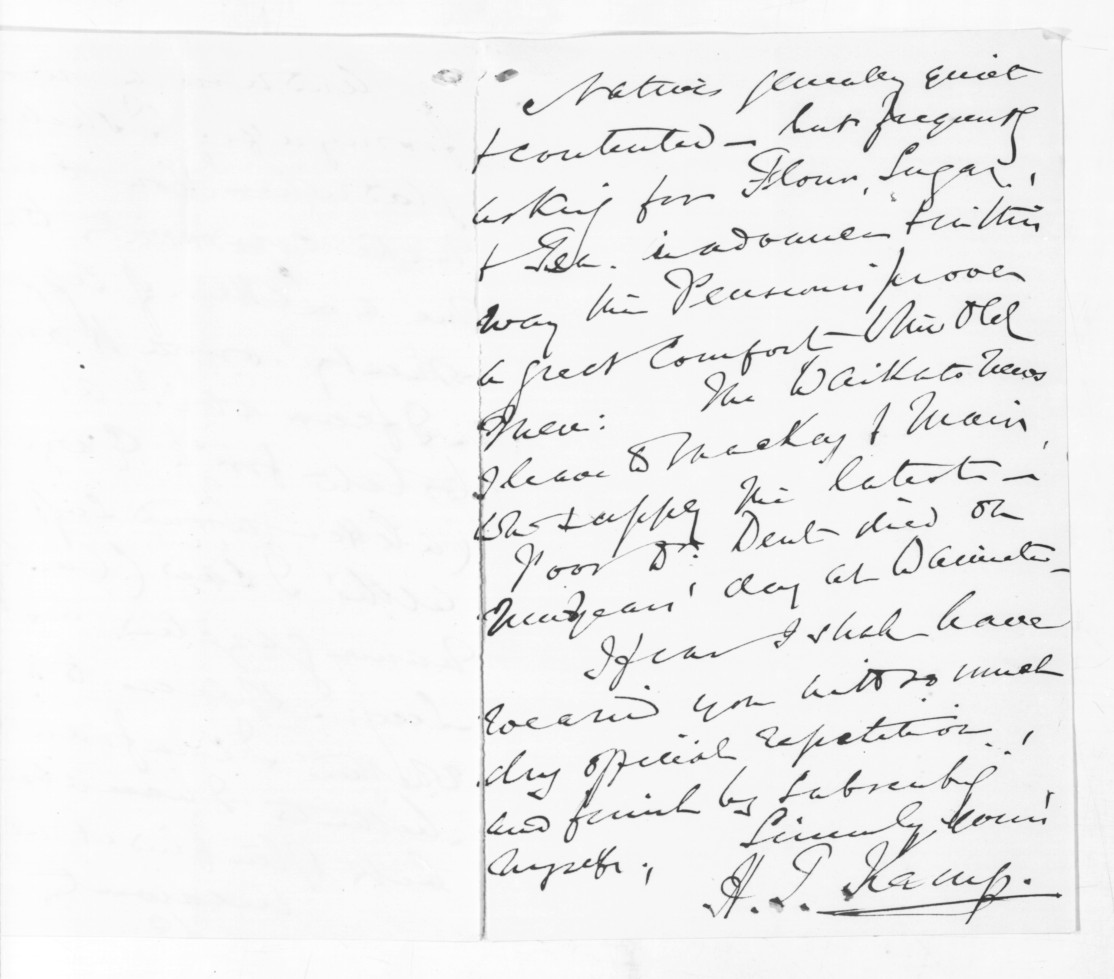 Natives generally quiet
& contented – but frequently
asking for Flour, Sugar,
& Tea. in advance & in this
way the Pensions proves
a great comfort to the Old
Men: The Waikato News
I leave to Mackay & Main,
who supply the latest –
Poor Dr. Dent died on
New Years' day at Waimate –
I fear I shall have
wearied you with so much
dry official repetition,
and finish by subscribing
myself, Sincerely yours
H. T. Kemp.